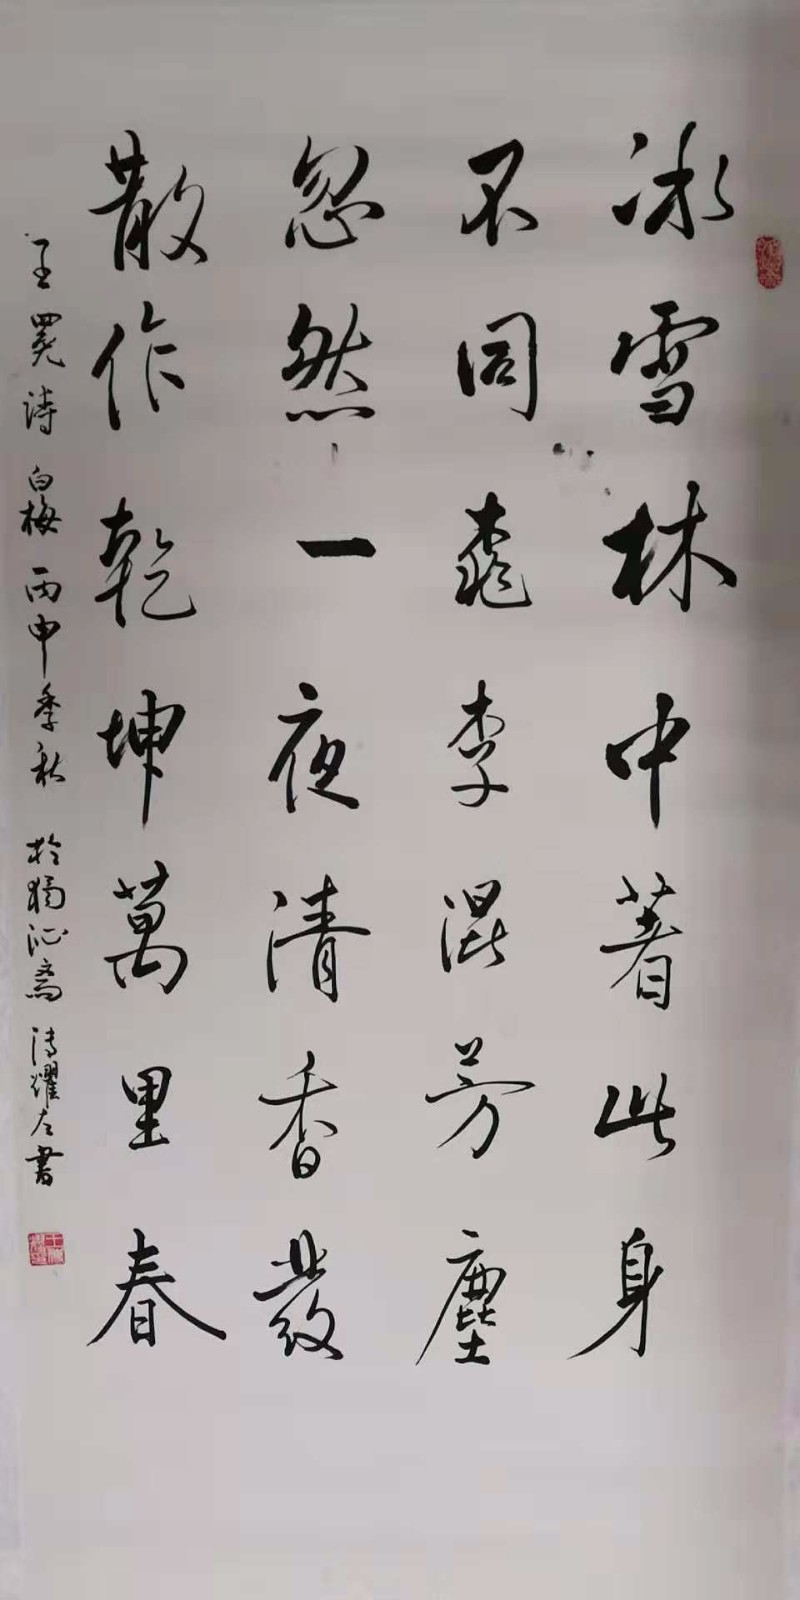 冰雪林中著此身
不同桃李混芳尘
忽然一夜清香發
散作乾坤萬里春
王冕詩 白梅 丙申季秋 於獨沁齋 清耀左書